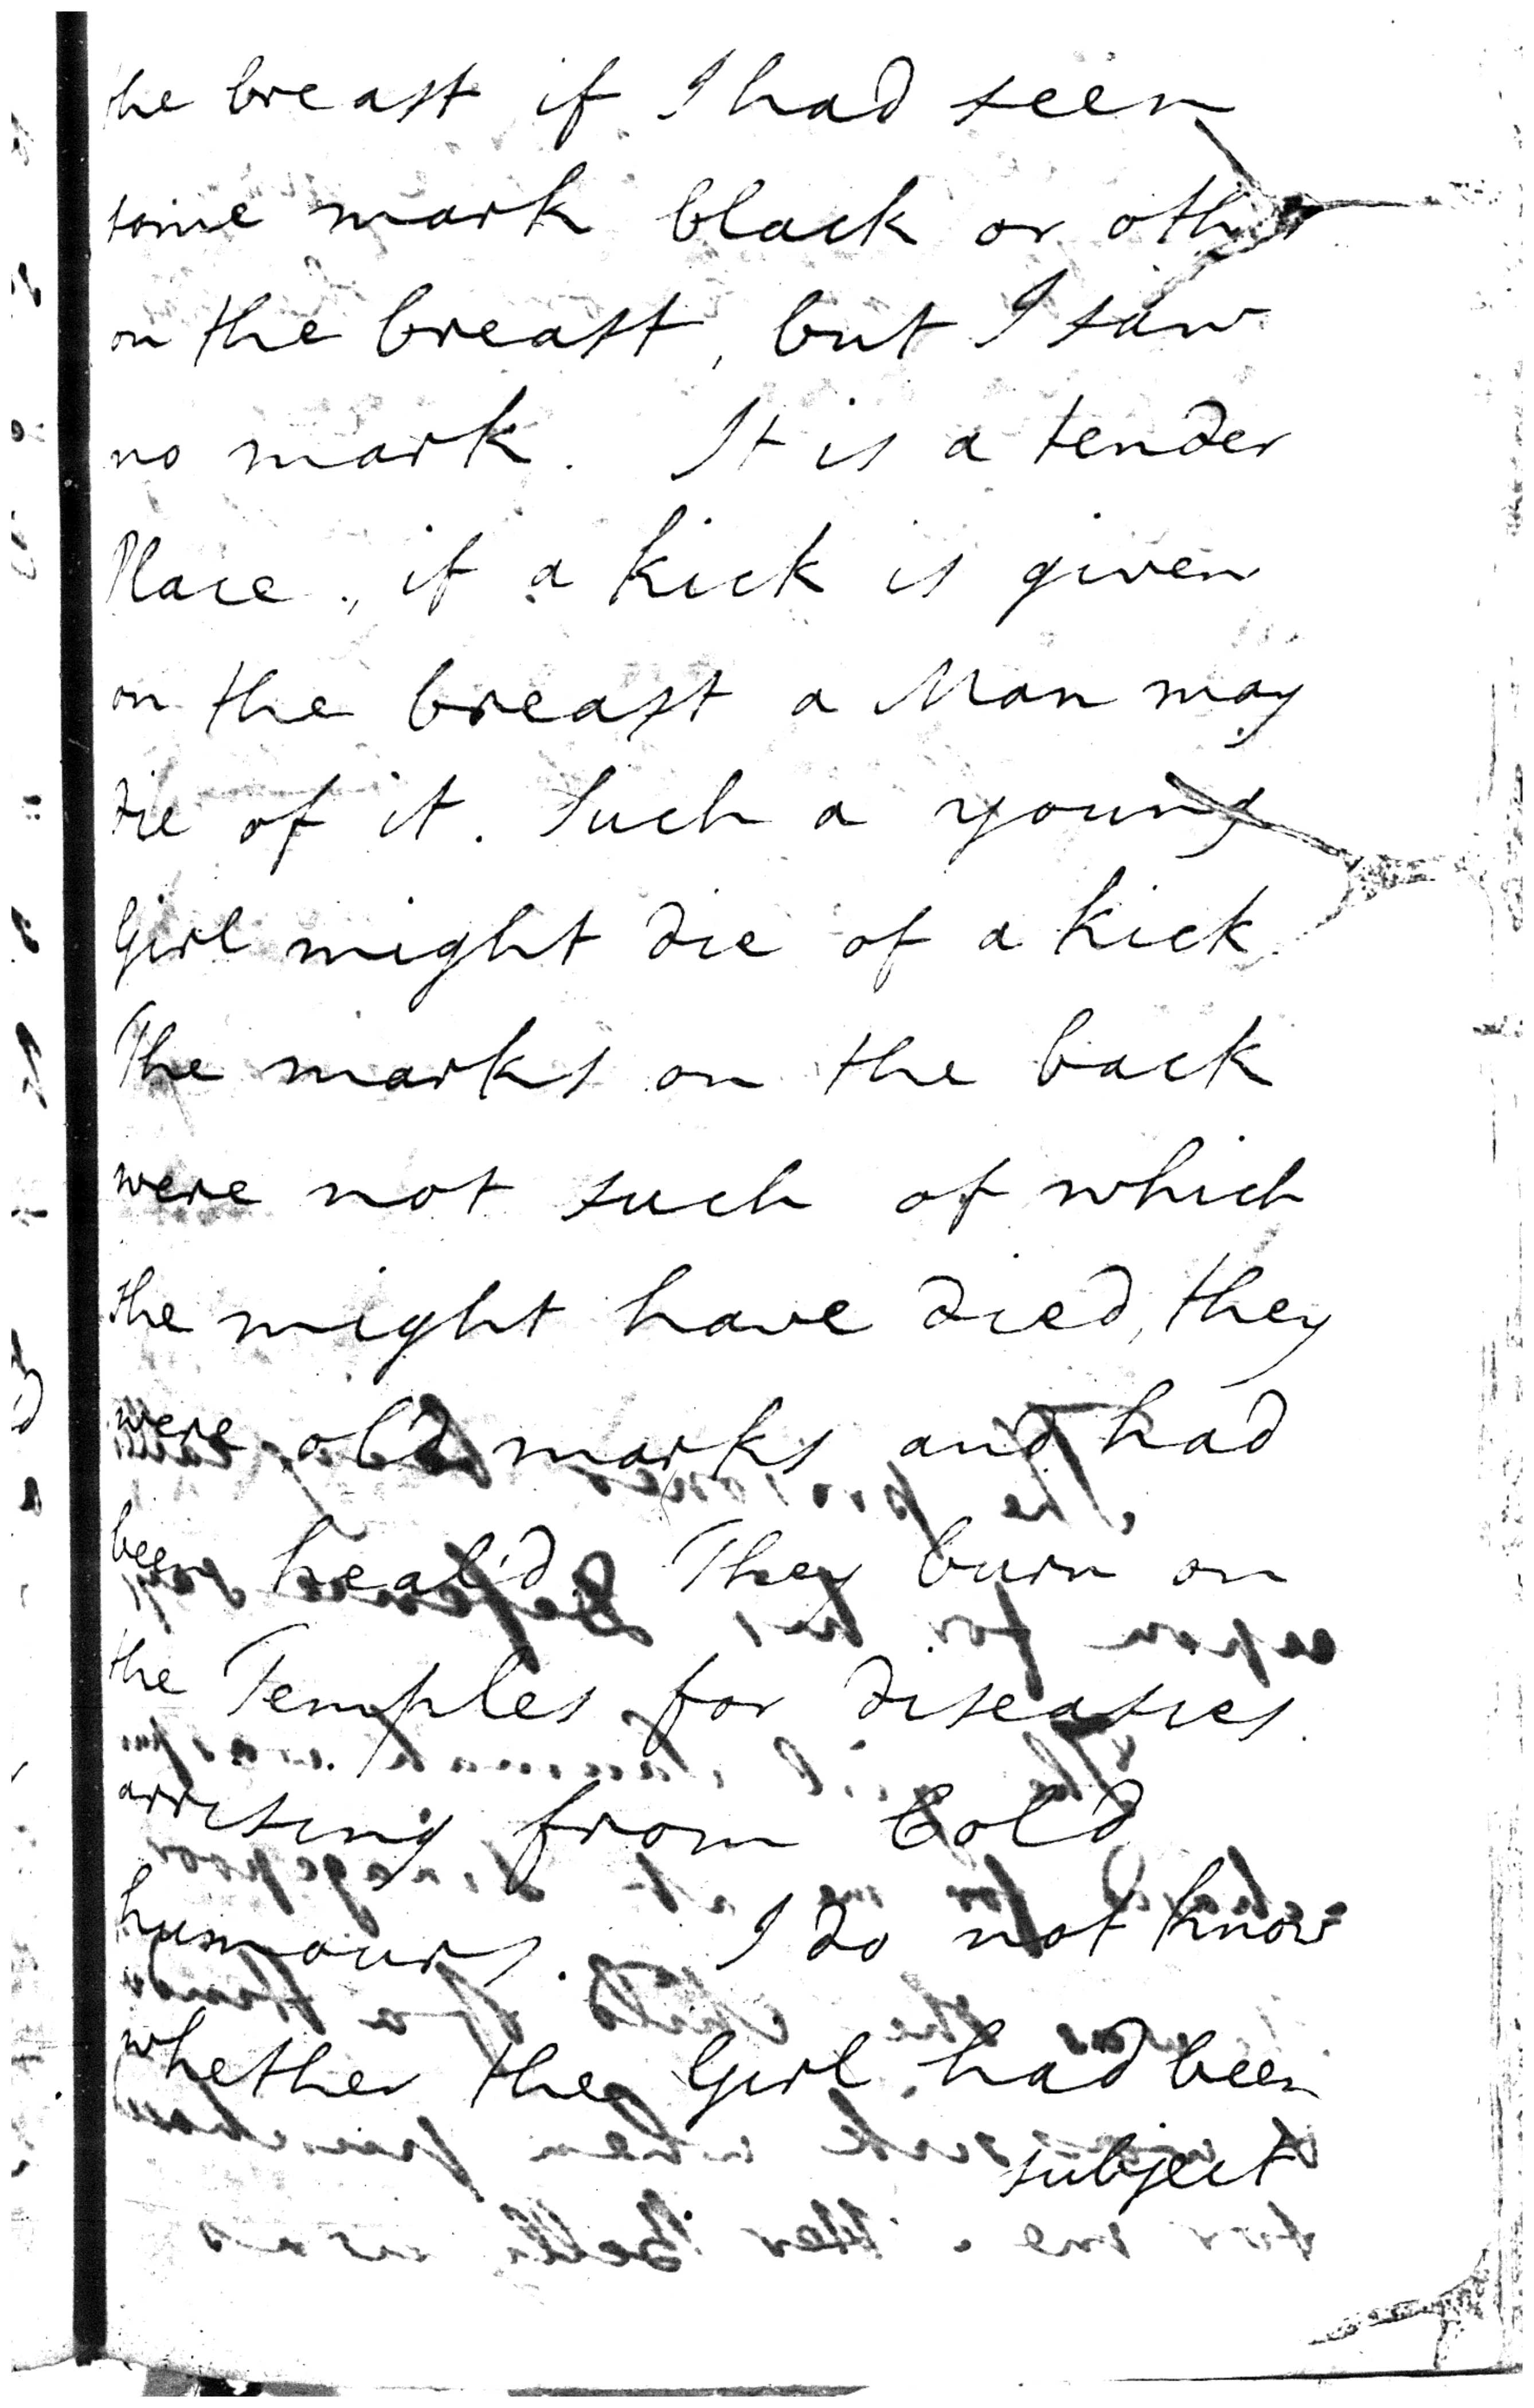 the breast if I had seen
some mark black or other
on the breast, but I saw
no mark. It is a tender
Place, if a kick is given
on the breast a Man may
die of it. Such a young
Girl might die of a kick
The marks on the back
were not such of which
she might have died, they
were old marks and had
been heal'd. They burn on
the Temples for diseases
arrising from Cold
humours. I do not know
whether the Girl had been
subject